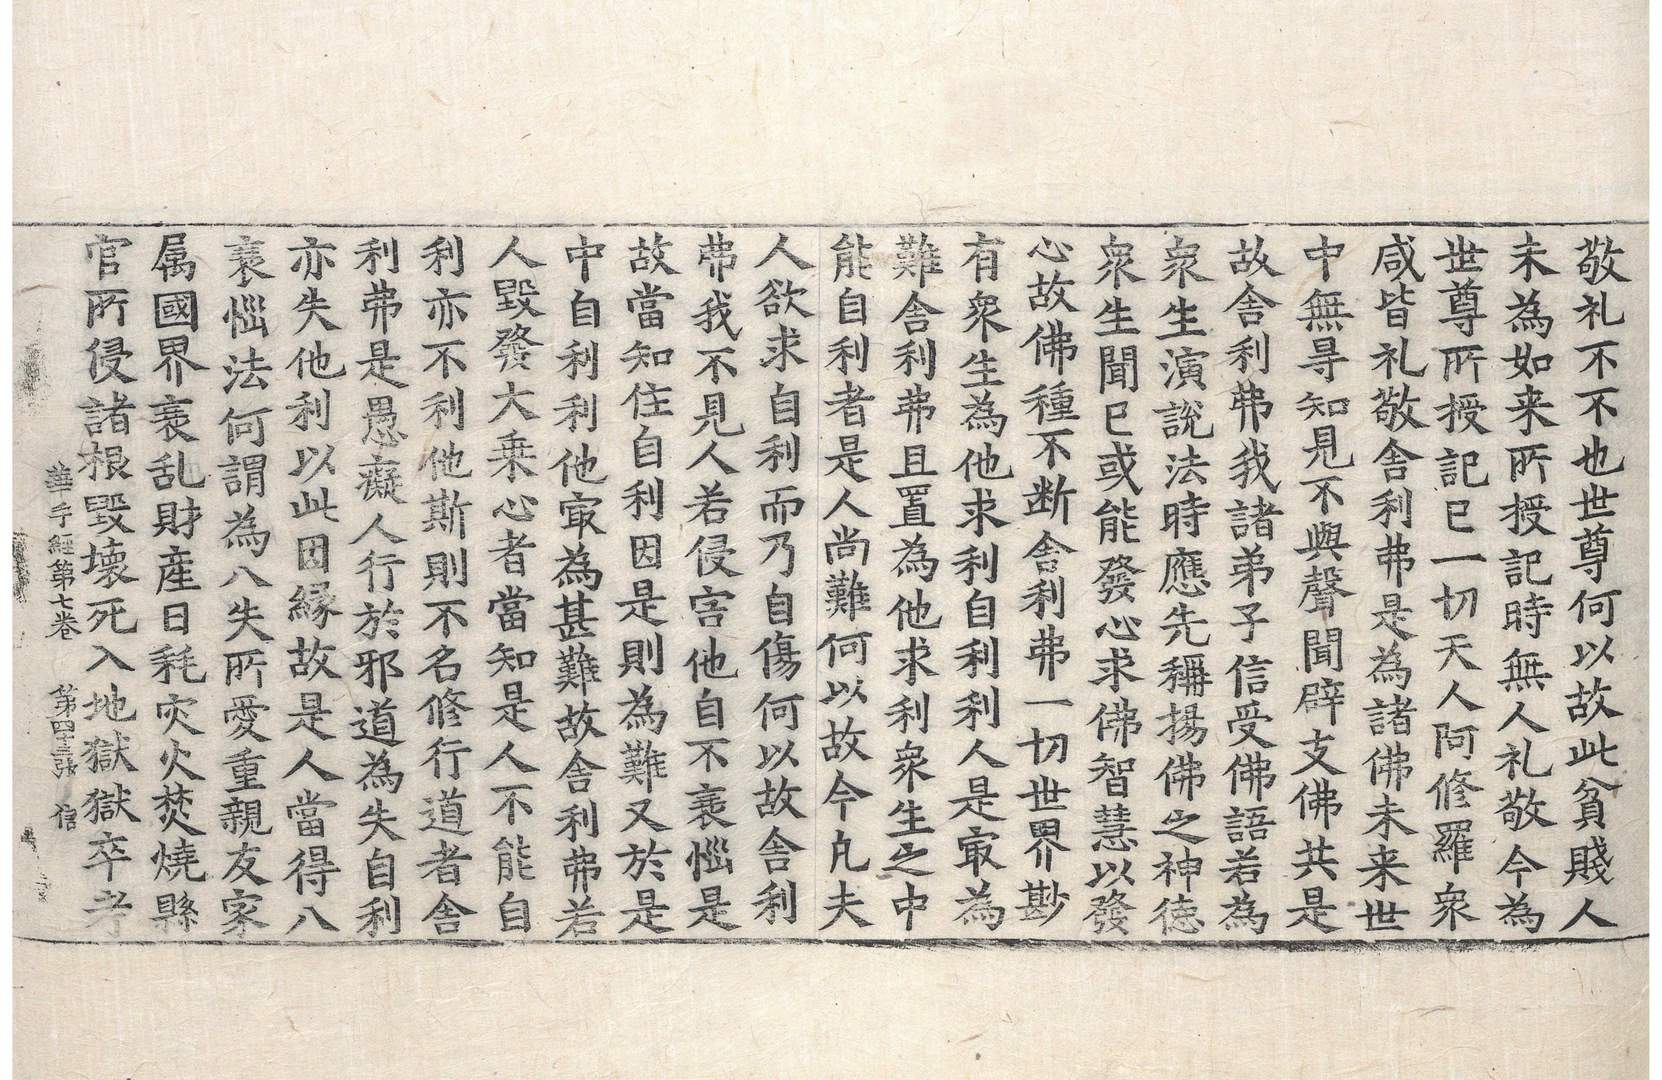 敬礼不不也世尊何以故此貧賤人
未為如来所授記時無人礼敬今為
世尊所授記已一切天人阿修羅衆
咸皆礼敬舎利弗是為諸佛未来世
中無㝵知見不與聲聞辟支佛共是
故舎利弗我諸弟子信受佛語若為
衆生演說法時應先稱揚佛之神徳
衆生聞已或能發心求佛智慧以發
心故佛種不断舎利弗一切世界尠
有衆生為他求利自利利人是㝡為
難舎利弗且置為他求利衆生之中
能自利者是人尚難何以故今凡夫
人欲求自利而乃自傷何以故舎利
弗我不見人若侵害他自不衰惱是
故當知住自利因是則為難又於是
中自利利他㝡為甚難故舎利弗若
人毀發大乗心者當知是人不能自
利亦不利他斯則不名修行道者舎
利弗是愚癡人行於邪道為失自利
亦失他利以此因縁故是人當得八
衰惱法何謂為八失所愛重親友家
属國界衰乱財産日耗灾火焚燒縣
官所侵諸根毀壊死入地獄獄卒考
華手經第七卷 第四十三張 信